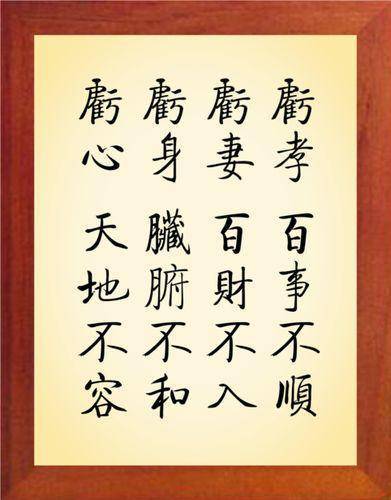 虧孝 百事不順
虧妻 百財不入
虧身 臟腑不和
虧心 天地不容